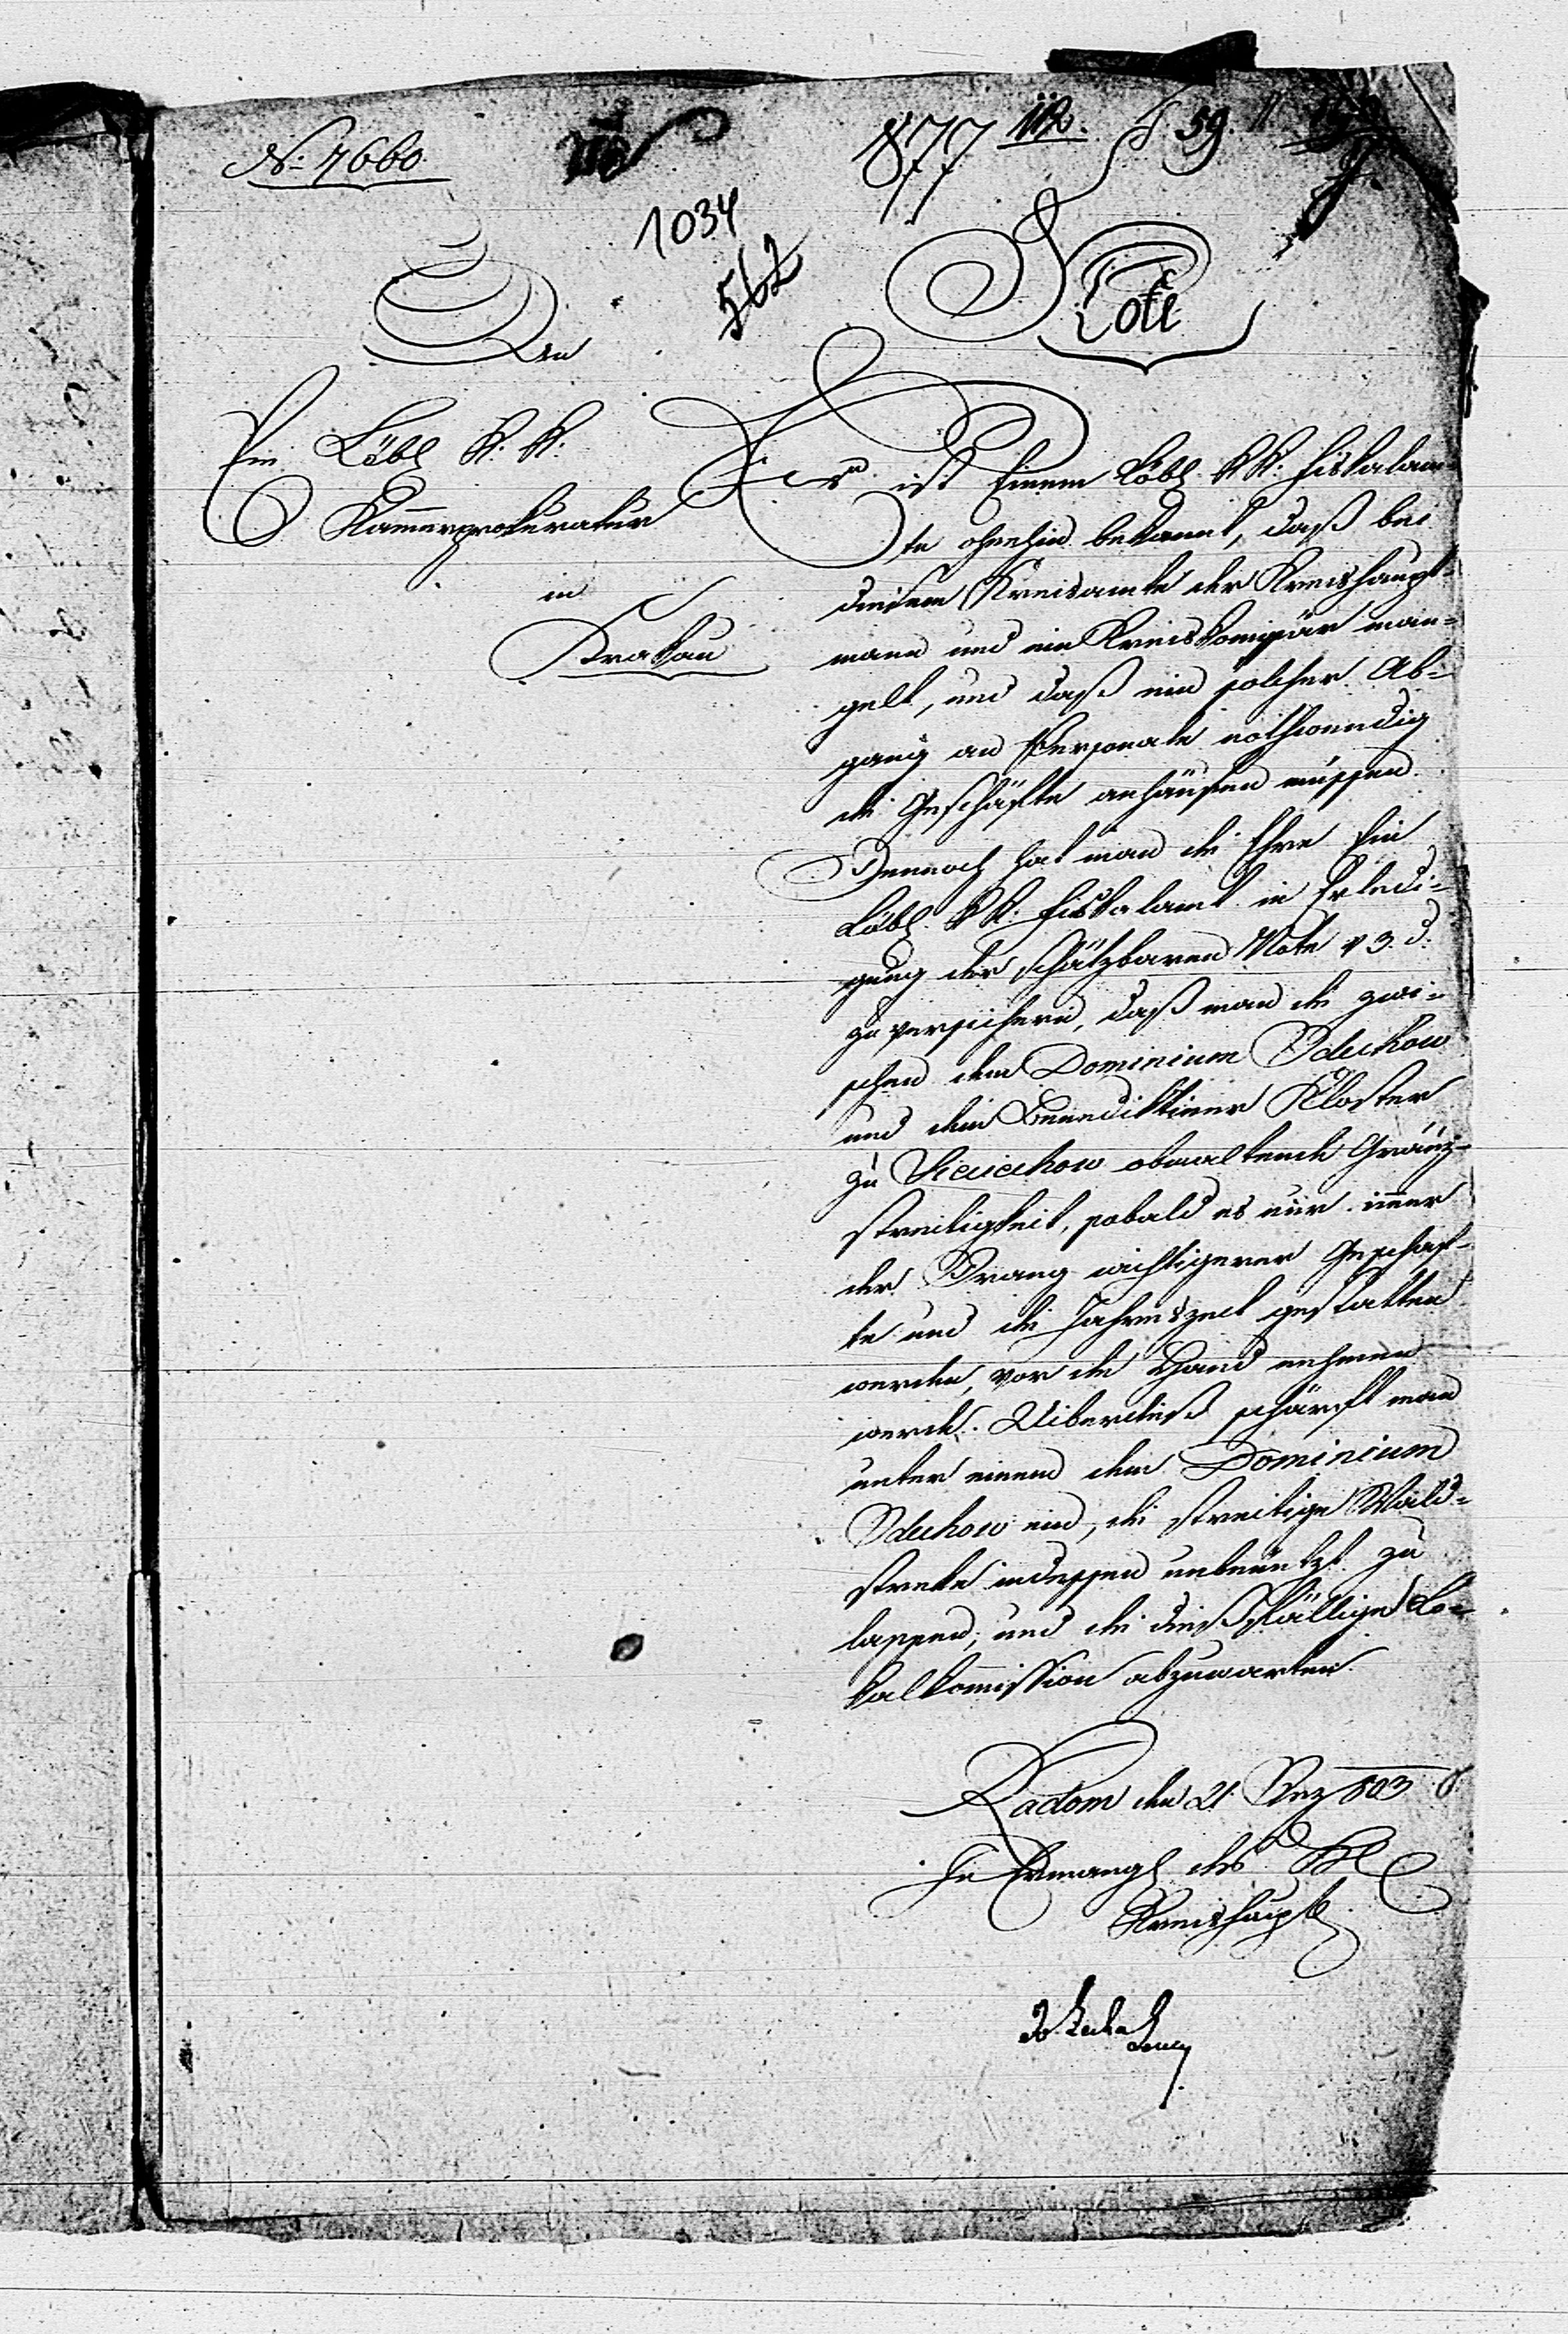 N: 7660.
877
59.
1034
562
Note
An
Ein Löbl K. K.
Kammerprokuratur
in
Krakau
Es ist Einem Löbl. KK. Fiskalam-
te ohnehin bekannt, daß bei
diesem Kreisamte der Kreishaupt-
mann und ein Kreiskomißär man-
gelt, und daß ein solcher Ab-
gang an Personale nothwendig
die Geschäfte anhäufen müssen.
Dennoch hat man die Ehre Ein
Löbl. KK. Fiskalamt in Erledi-
gung der schätzbaren Note v 3. d.
zu versichern, daß man die zwi-
schen dem Dominium Zdechow
und dem Benediktiner Kloster
zu Sieciechow obwaltende Gränz-
streitigkeit, sobald es nur immer
der Drang wichtigerer Geschäf-
te und die Jahreszeit gestatten
werden, vor die Hand nehmen
werde. Uiberdieß schärft man
unter einem dem Dominium
Zdechow ein, die streitige Wald-
streke indessen unbenützt zu
lassen, und die dießfällige Lo-
kalkommission abzuwarten.
Radom den 21. Dez 803
In Ermangl des
Kreishauptm